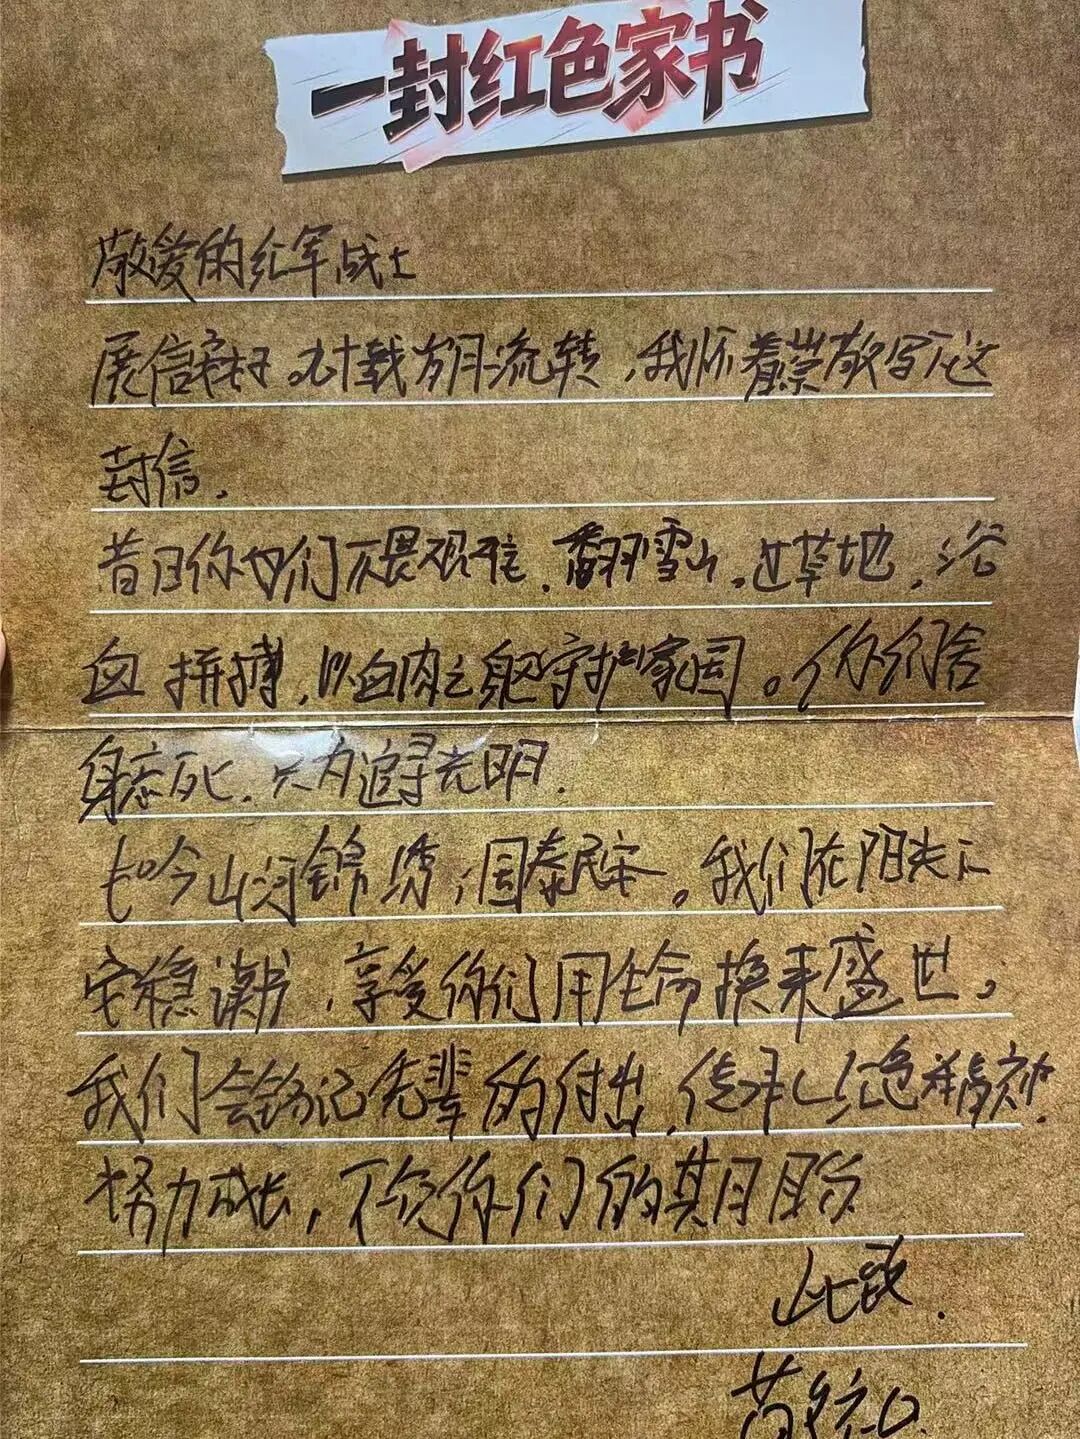 一封红色家书
敬爱的红军战士
展信 。九十载岁月流转，我怀着崇敬写下这
封信.
昔日你们不畏艰难.翻雪山.过草地.浴
血拼搏，以血肉之躯守护家国。你们舍
身忘死.只为追寻光明.
如今山河锦绣，国泰民安。我们在阳光下
安稳读书，享受你们用生命换来盛世。
我们会铭记先辈的付出，传承红色精神.
努力成长，不负你们的期盼
此致.